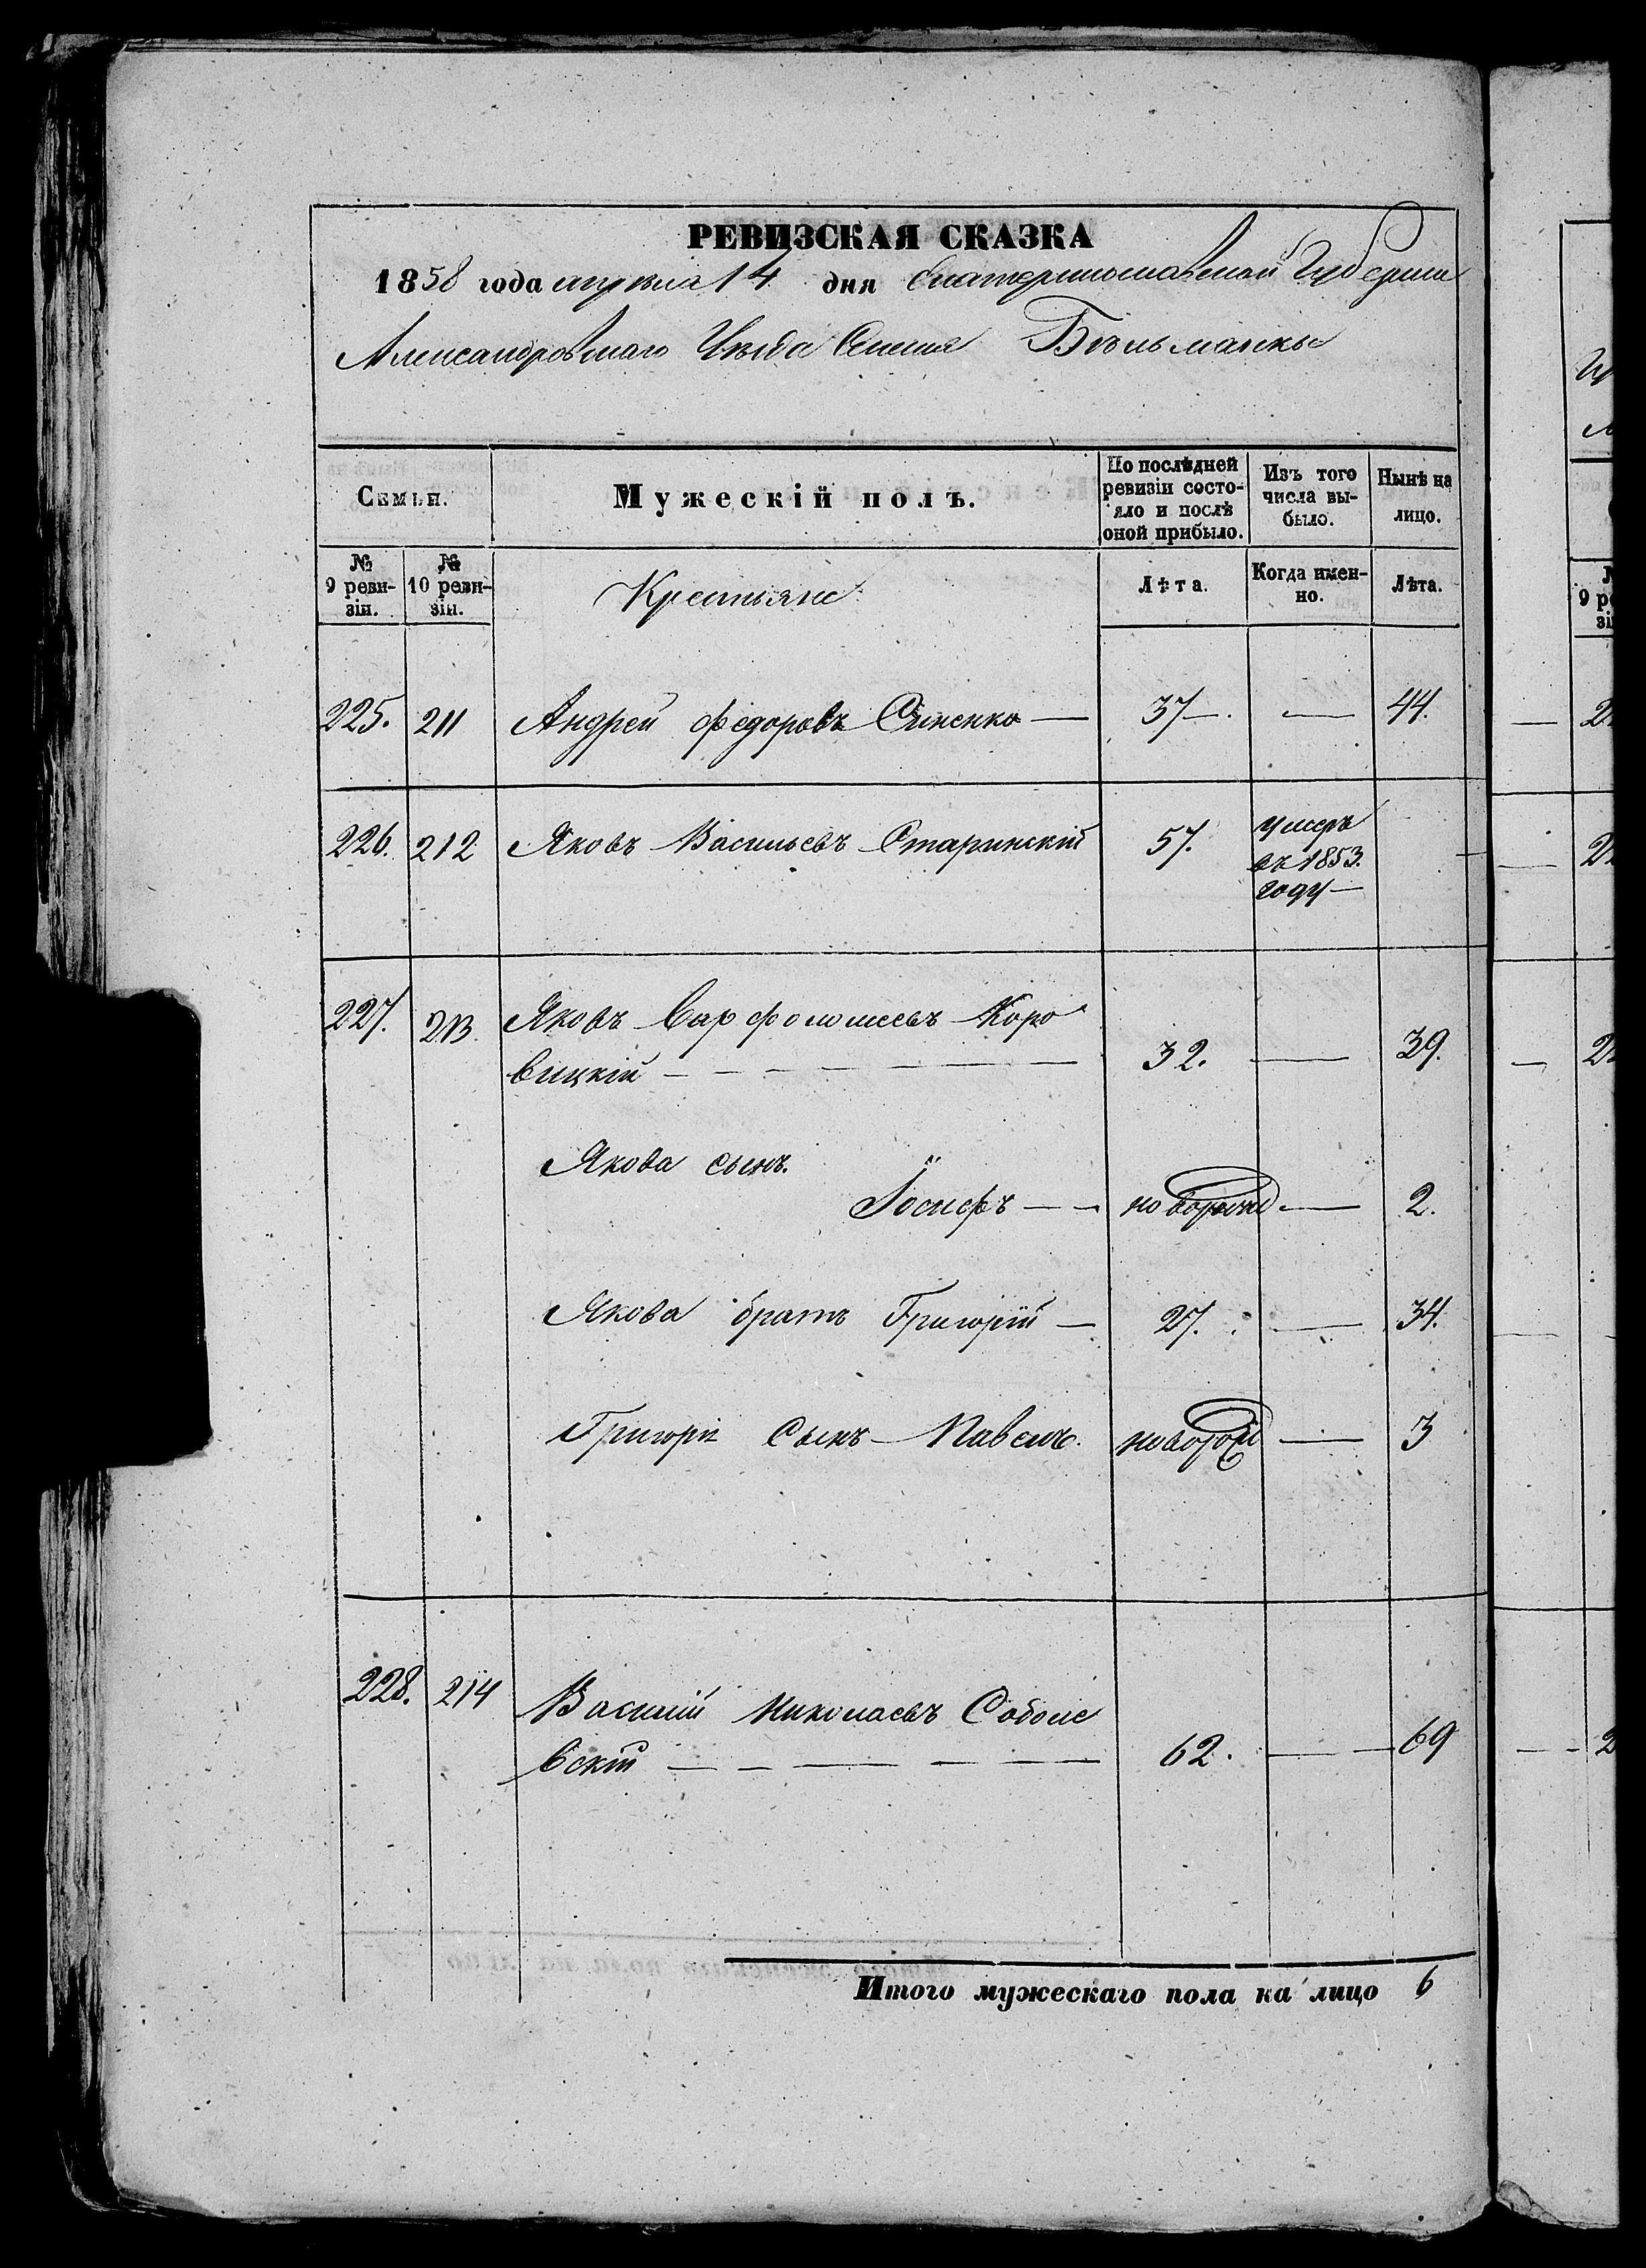 РЕВИЗСКАЯ СКАЗКА
1858 года апрѣля 14 дня Екатеринославской Губерніи
Александровскаго Уѣзда Селенія Бѣльманки
Семьи.
Мужескій полъ.
По послѣдней ревизіи состояло и послѣ оной прибыло.
Изъ того числа выбыло.
Нынѣ на лицо.
№ 9 ревизіи.
№ 10 ревизіи.
Крестьяне
Лѣта.
Когда именно.
Лѣта.
225. 211 Андрей Федоровъ Синенко — 37—. — 44.
226. 212 Яковъ Васильевъ Старинскій 57. умеръ
въ 1853.
году —
227. 213. Яковъ Варфоломеевъ Коро
вицкій — 32. — 39.
Якова сынъ.
Іосифъ — — новорожд — 2.
Якова братъ Григорій — 27. — 34.
Григорія Сынъ Павелъ. новорож — 3
228. 214 Василій Николаевъ Соболе
вскій — 62. — 69
Итого мужескаго пола на лицо 6
9